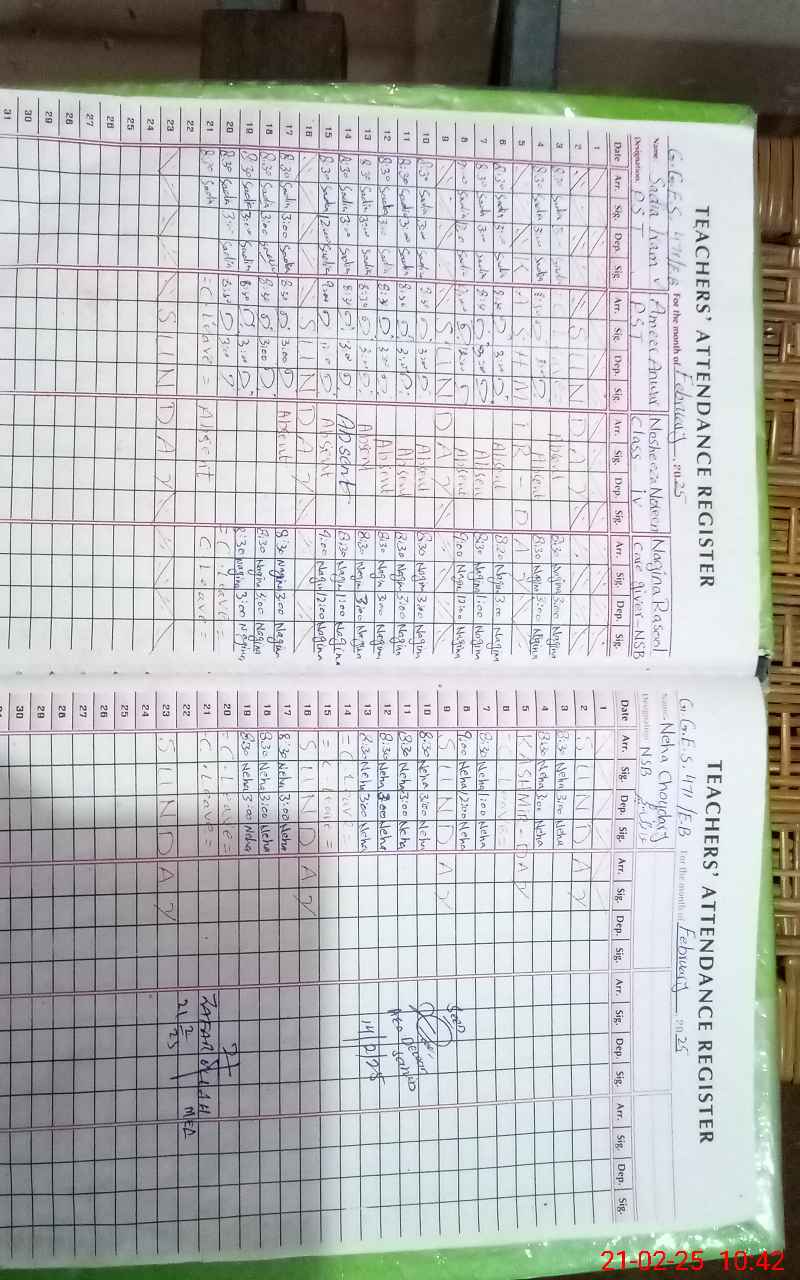 TEACHERS' ATTENDANCE REGISTER
G.G.E.S 471/E.B For the month of February 2025
Name Sadia Ameer Anwar Nosheeza Noreen Nagina Rasool
Designation PST PST Class iv care giver-NSB
Date Arr. Sig. Dep. Sig. Arr. Sig. Dep. Sig. Arr. Sig. Dep. Sig. Arr. Sig. Dep. Sig.
1
2 SUNDAY
3 8:30 Sadia 3:00 Sadia Absent 8:30 Nagina 3:00 Nagina
4 8:30 Sadia 3:00 Sadia 8:30 3:00 Absent 8:30 Nagina 3:00 Nagina
5 KASHMIR-DAY
6 8:30 Sadia 3:00 Sadia 8:30 3:00 Absent 8:20 Nagina 3:00 Nagina
7 8:30 Sadia Sadia 8:30 Absent 8:30 Nagina 1:00 Nagina
8 9:00 Sadia 12:00 Sadia 9:00 12:00 Absent 9:00 Nagina 12:00 Nagina
9 SUNDAY
10 8:30 Sadia 3:00 Sadia 8:30 3:00 Absent 8:30 Nagina 3:00 Nagina
11 8:30 Sadia 3:00 Sadia 8:30 3:00 Absent 8:30 Nagina 3:00 Nagina
12 8:30 Sadia 3:00 Sadia 8:30 3:00 Absent 8:30 Nagina 3:00 Nagina
13 8:30 Sadia 3:00 Sadia 8:30 3:00 Absent 8:30 Nagina 3:00 Nagina
14 8:30 Sadia Sadia 8:30 Absent 8:30 Nagina 1:00 Nagina
15 8:30 Sadia 12:00 Sadia 9:00 12:00 Absent 9:00 Nagina 12:00 Nagina
16 SUNDAY
17 8:30 Sadia 3:00 Sadia 8:30 3:00 Absent 8:30 Nagina 3:00 Nagina
18 8:30 Sadia 3:00 Sadia 8:30 3:00 8:30 Nagina 3:00 Nagina
19 8:30 Sadia 3:00 Sadia 8:30 3:00 8:30 Nagina 3:00 Nagina
20 8:30 Sadia 3:00 Sadia 8:30 3:00 =C.Leave=
21 8:30 Sadia =C.Leave= Absent C.Leave=
22
23 SUNDAY
24
25
26
27
28
29
30
31
TEACHERS' ATTENDANCE REGISTER
G.G.E.S. 471/E.B For the month of February 2025
Name Neha Choudary
Designation NSB
Date Arr. Sig. Dep. Sig. Arr. Sig. Dep. Sig. Arr. Sig. Dep. Sig. Arr. Sig. Dep. Sig.
1
2 SUNDAY
3 8:30 Neha 3:00 Neha
4 8:30 Neha 3:00 Neha
5 KASHMIR-DAY
6 C.Leave=
7 8:30 Neha 1:00 Neha
8 9:00 Neha 12:00 Neha
9 SUNDAY
10 8:30 Neha 3:00 Neha
11 8:30 Neha 3:00 Neha
12 8:30 Neha 3:00 Neha
13 8:30 Neha 3:00 Neha 14/2/25
14 =C.Leave=
15 =C.Leave=
16 SUNDAY
17 8:30 Neha 3:00 Neha
18 8:30 Neha 3:00 Neha
19 8:30 Neha 3:00 Neha
20 =C.Leave=
21 -C.Leave= ZAFAR ULLAH
22 21/2/25 MEA
23 SUNDAY
24
25
26
27
28
29
30
21-02-25 10:42